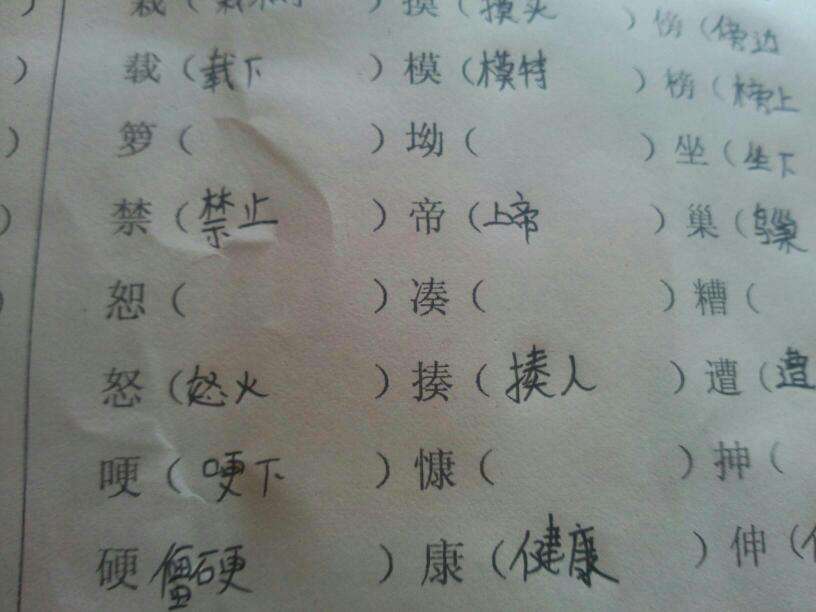 栽（ ）摸（摸头 ）傍（傍边
载（载下 ）模（模特 ）榜（榜上
箩（ ）坳（ ）坐（坐下
禁（禁止 ）帝（上帝 ）巢（鸟巢
恕（ ）凑（ ）糟（
怒（怒火 ）揍（揍人 ）遭（遭
哽（哽下 ）慷（ ）抻（
硬 僵硬 ）康（健康 ）伸（